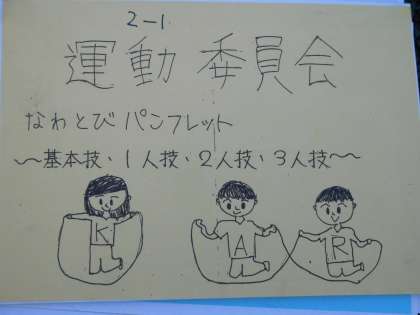 2-1
運動委員会
なわとびパンフレット
～基本技・1人技・2人技・3人技～
K A R